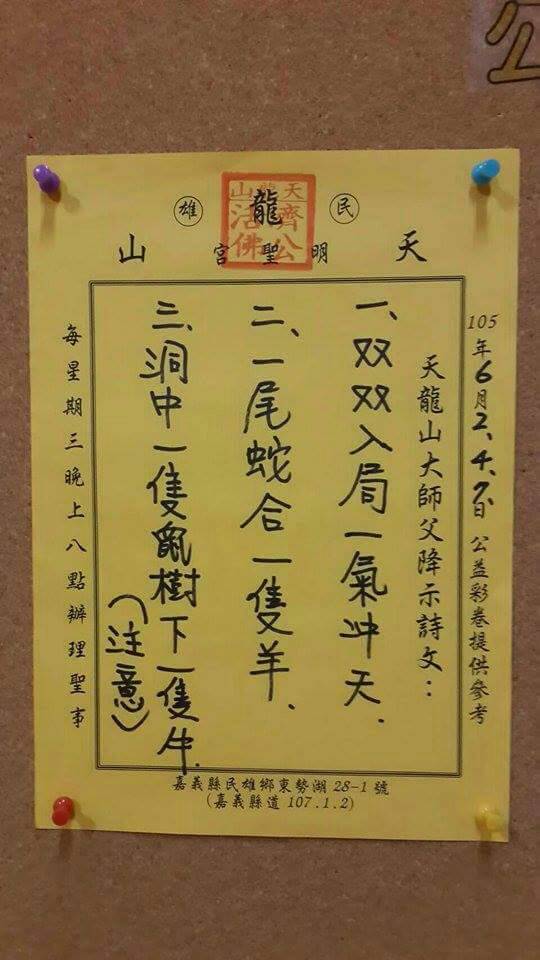 公
民 龍 雄
天 明聖宮 山
天龍山
濟公
活佛
105年6月2、4、7日 公益彩卷提供參考
天龍山大師父降示詩文：
一、双双入局一氣冲天.
二、一尾蛇合一隻羊.
三、洞中一隻鼠樹下一隻牛.
(注意)
每星期三晚上八點辦理聖事
嘉義縣民雄鄉東勢湖28-1號
(嘉義縣道107.1.2)